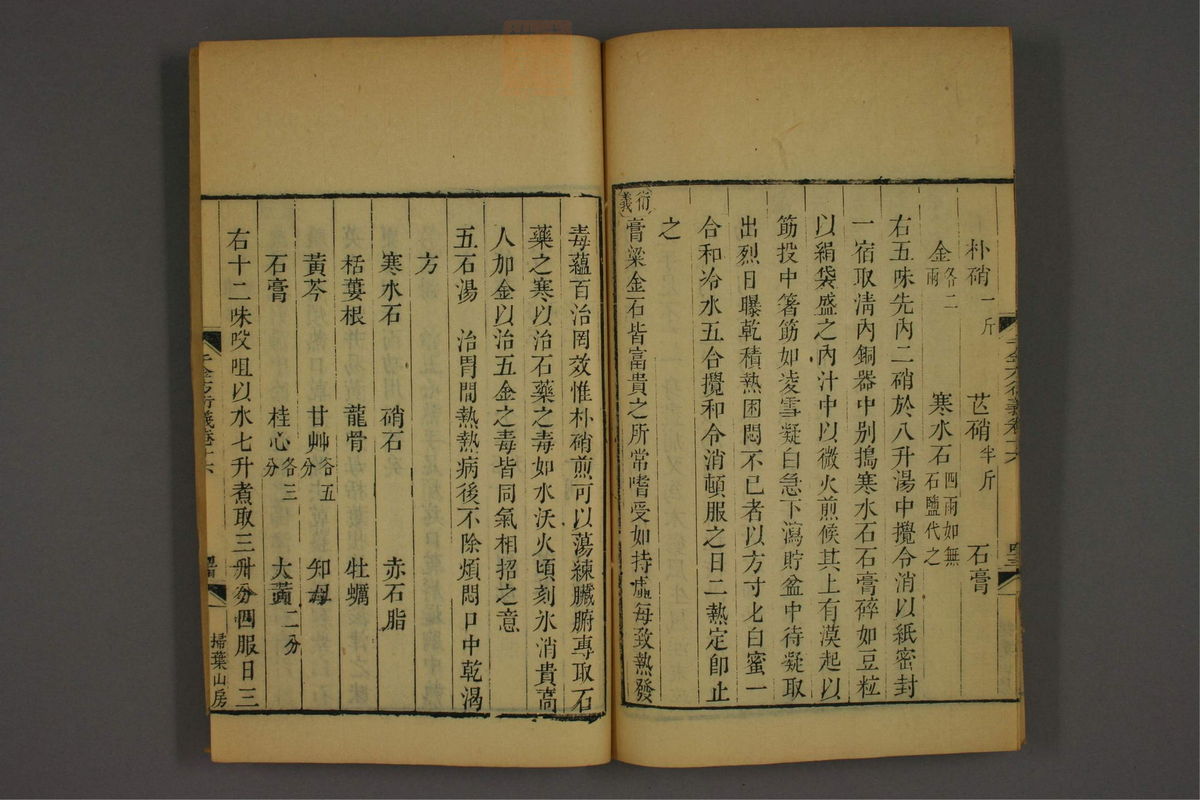 朴硝一斤 芒硝半斤 石膏
金各二兩 寒水石四兩如無石鹽代之
右五味先內二硝於八升湯中攪令消以紙密封
一宿取淸內銅器中別搗寒水石石膏碎如豆粒
以絹袋盛之內汁中以微火煎候其上有漠起以
筋投中箸筋如凌雪凝白急下瀉貯盆中待凝取
出烈日曝乾積熱困悶不已者以方寸匕白蜜一
合和冷水五合攪和令消頓服之日二熱定卽止
之
衍義
膏粱金石皆富貴之所常嗜受如持每致熱發
毒蘊百治罔效惟朴硝煎可以蕩練臟腑專取石
藥之寒以治石藥之毒如水沃火頃刻氷消貴高
人加金以治五金之毒皆同氣相招之意
五石湯 治胃間熱熱病後不除煩悶口中乾渴
方
寒水石 硝石 赤石脂
栝蔞根 龍骨 牡蠣
黃芩 甘艸各五分 知母
石膏 桂心各三分 大黃二分
右十二味㕮咀以水七升煮取三升分四服日三
千金方衍義卷十六
掃葉山房